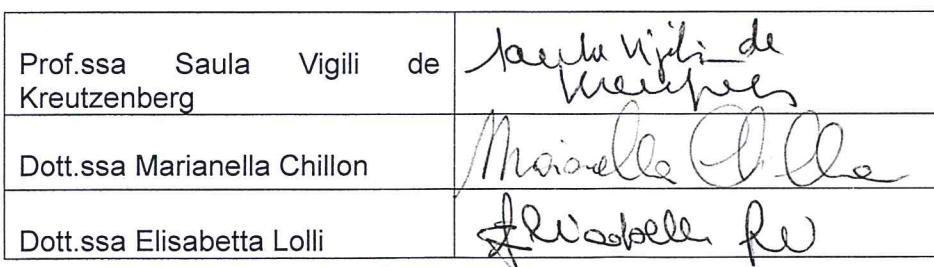 Prof.ssa Saula Vigili de
Kreutzenberg
Saula Vigili de
Kreutzenberg
Dott.ssa Marianella Chillon
Marianella Chillon
Dott.ssa Elisabetta Lolli
Elisabetta